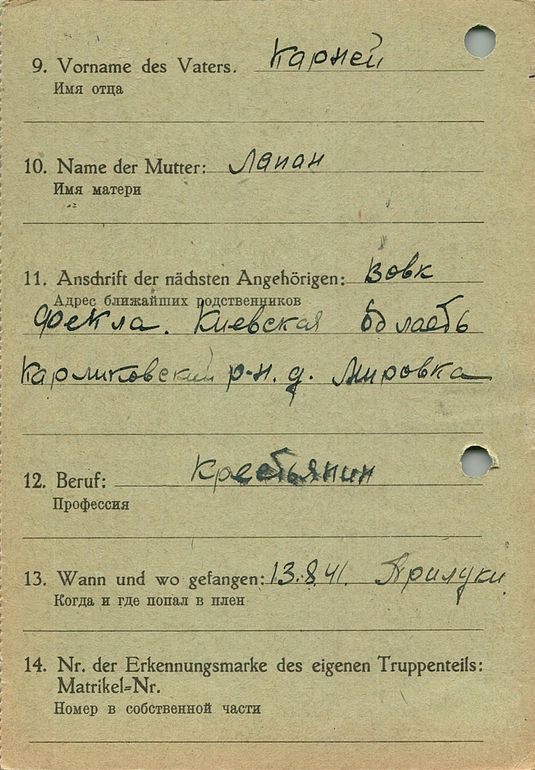 9. Vorname des Vaters. Карней
Имя отца
10. Name der Mutter: Лапан
Имя матери
11. Anschrift der nächsten Angehörigen: Вовк
Адрес ближайших родственников
Фекла. Киевская область
Карликовский р-н. д. Мировка
12. Beruf: Крестьянин
Профессия
13. Wann und wo gefangen: 13.8.41. Прилуки
Когда и где попал в плен
14. Nr. der Erkennungsmarke des eigenen Truppenteils:
Matrikel-Nr.
Номер в собственной части